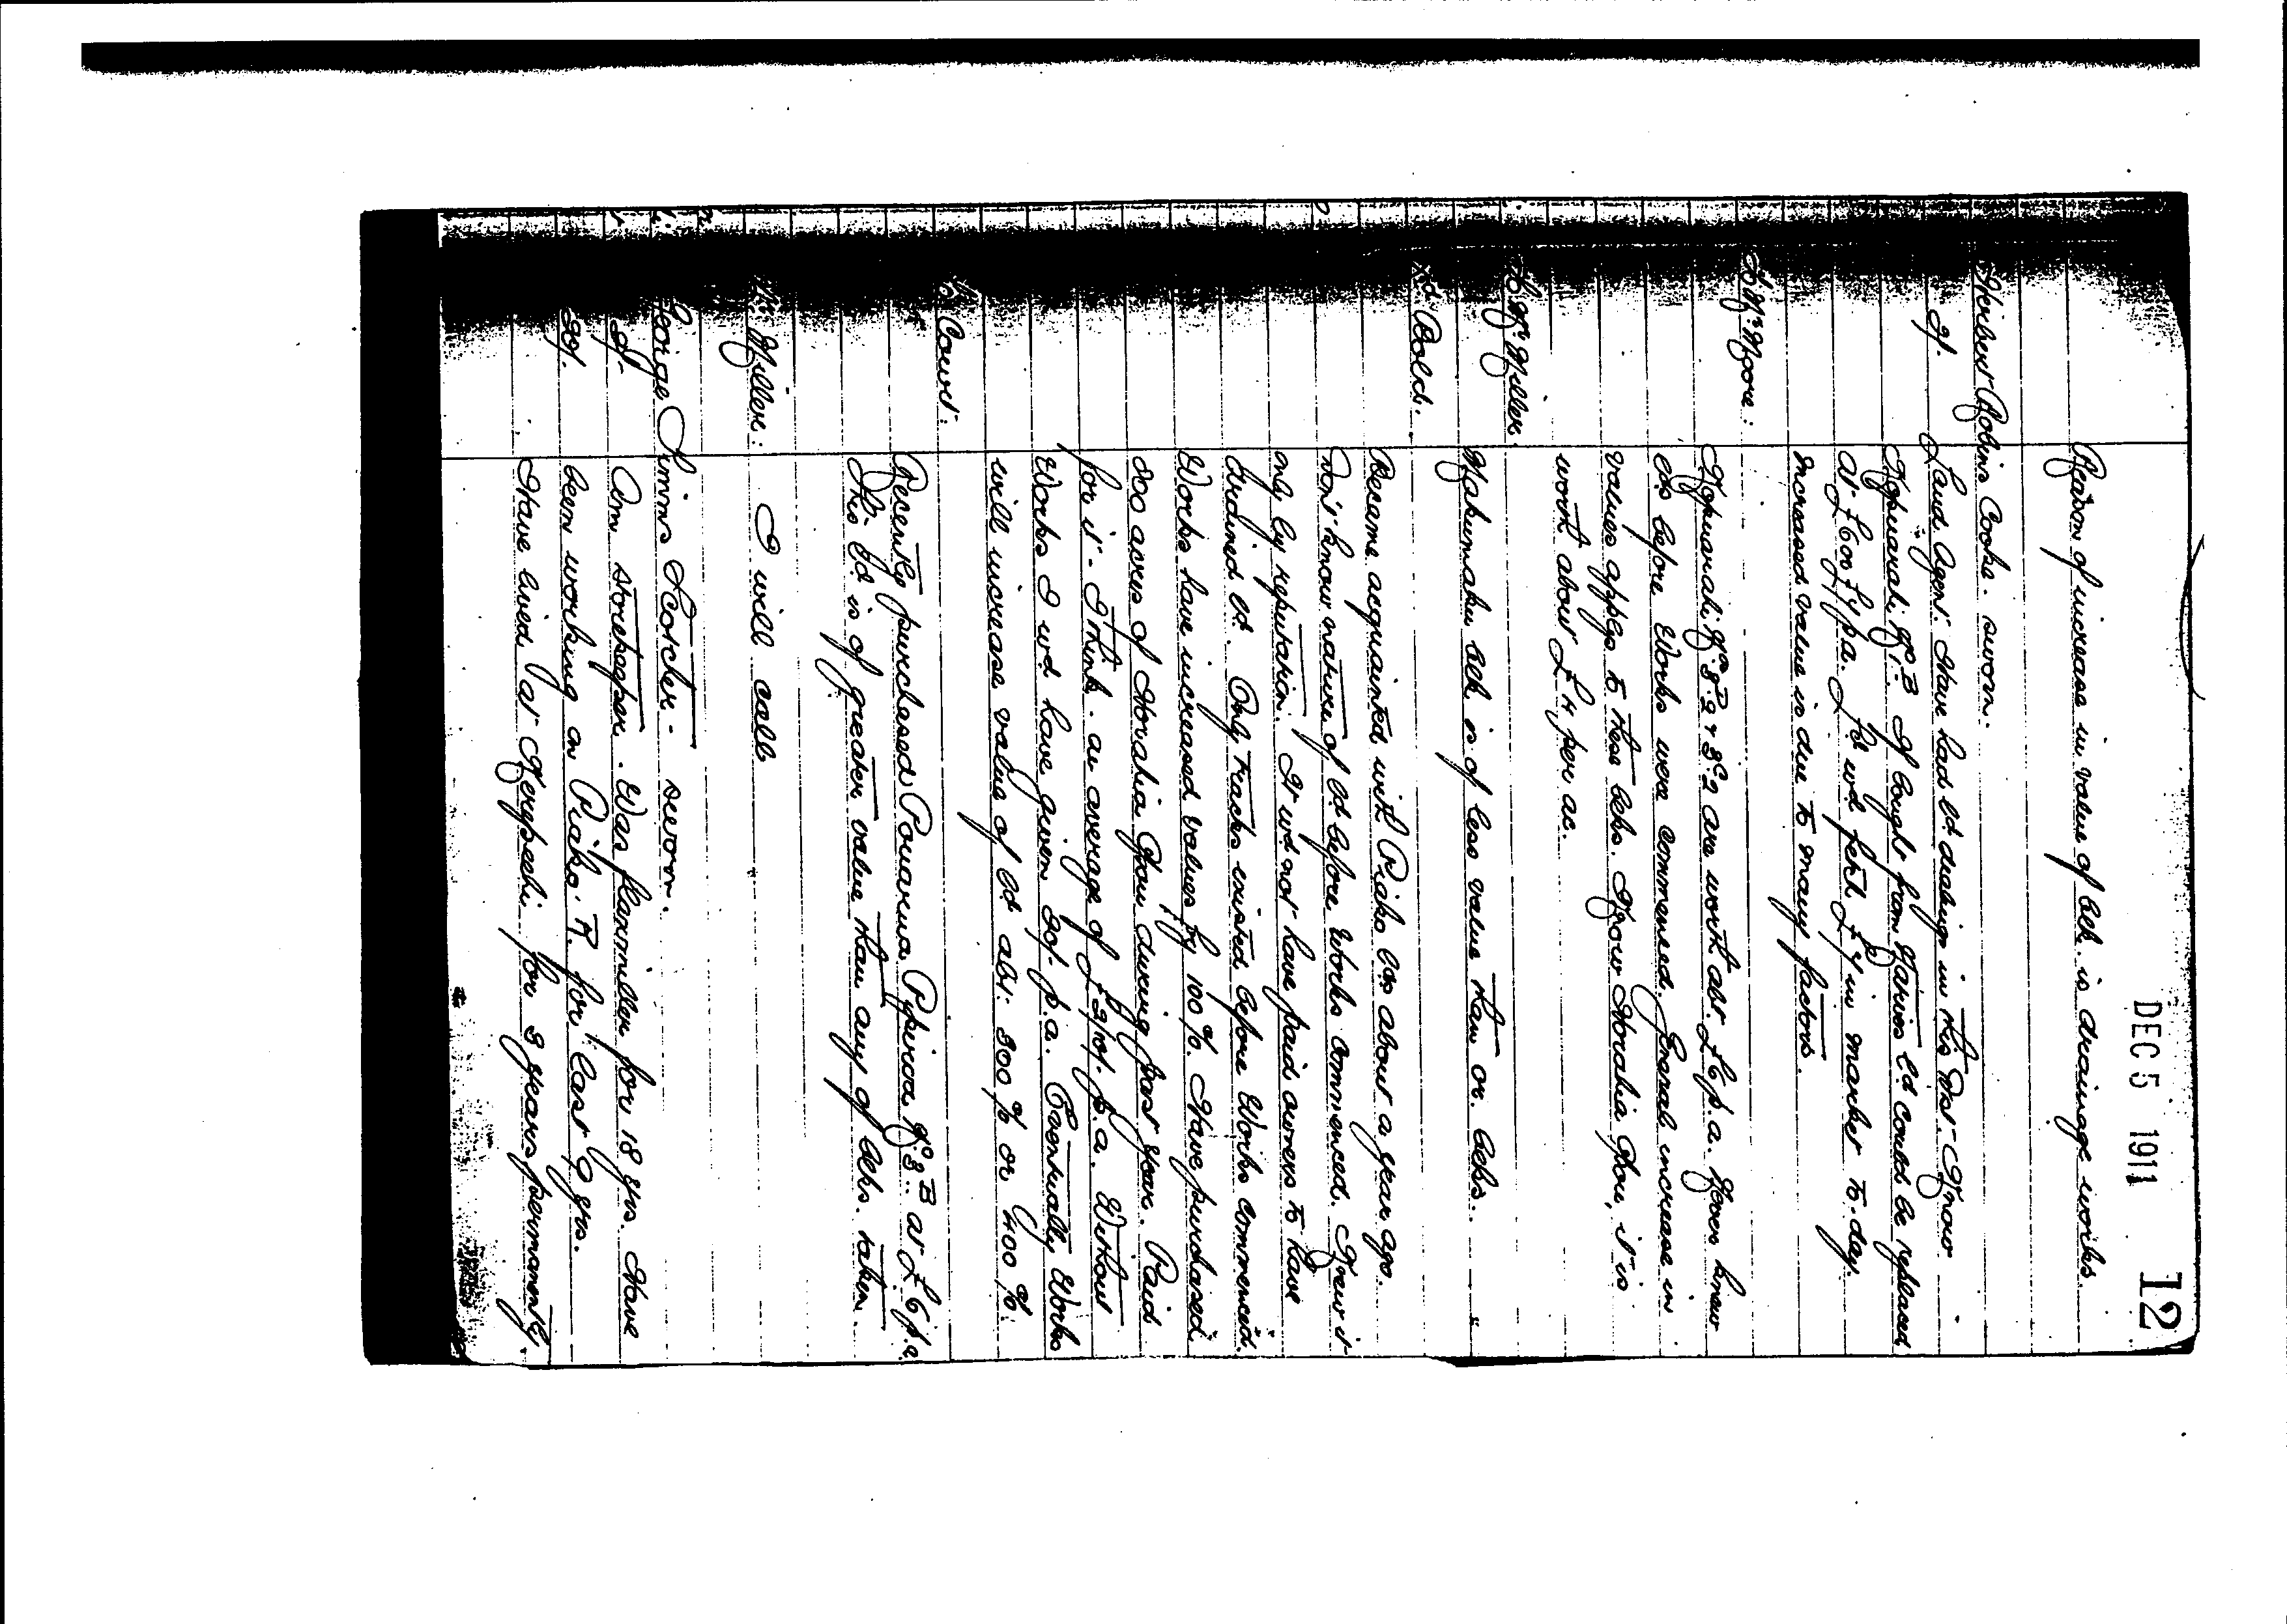 DEC 5 1911 12
Reason of increase in value of blk. is drainage works.
Herbert Robins Cooke. sworn.
Land Agent. Have had ld. dealings in this Dist. Know
Kopuarahi No 1B. If bought from Natives ld could be replaced
at £6 or £7 p.a. It wd fetch £7 in market to-day.
Increased value is due to many factors.
To Mr Moore: Kopuarahi Nos 3B2 & 3C2 are worth abt. £6 p.a. Never knew
lds before Works were commenced. General increase in
values applys to these blks. Know Horahia Opou, it is
worth about £4 per ac.
To Mr Miller. Makumaku blk is of less value than or. blks.
xd Bold. Became acquainted with Piako lds about a year ago.
Don't know nature of ld before Works commenced. Knew it
only by reputation. It wd not have paid owners to have
drained ld. Only tracks existed before Works commenced.
Works have increased values by 100%. Have purchased
800 acres of Horahia Opou during past year. Paid
for it - I think - an average of £3/10/- p.a. Without
Works I wd have given 30/- p.a. Eventually Works
will increase value of ld abt. 300% or 400%.
To Court: Recently purchased Pouarua Pipiroa No 3B at £6 p.a.
This ld is of greater value than any of blks. taken.
Mr Miller: I will call
George Simms Scotcher - sworn.
Am storekeeper. Was flaxmiller for 18 yrs. Have
been working on Piako R. for last 9 yrs.
Have lived at Kerepeehi for 3 years permanently.